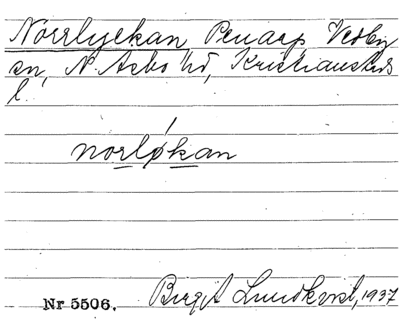 Norrlyckan, Penarp, Vedby
sn, N. Åsbo hd, Kristianstads
l.
norløkan
Nr 5506. Birgit Lundkvist, 1937